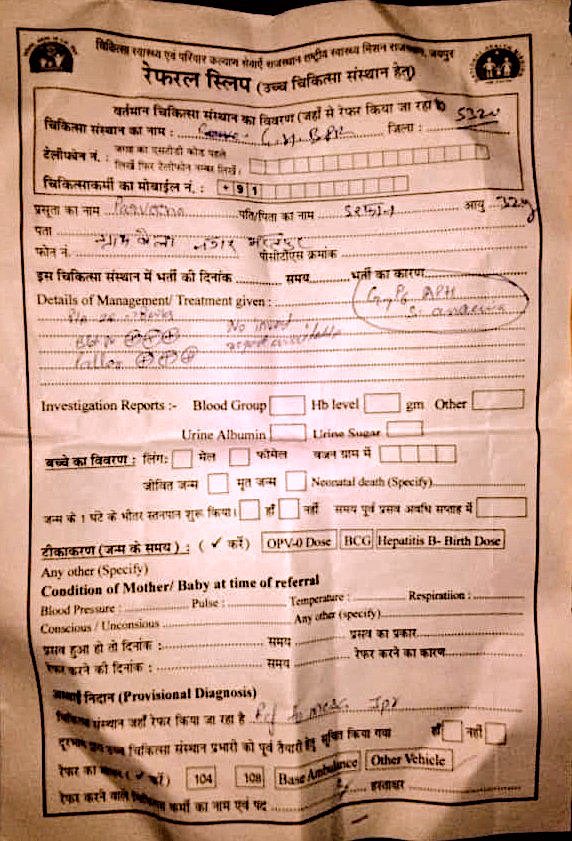 चिकित्सा स्वास्थ्य एवं परिवार कल्याण सेवाऐं राजस्थान राष्ट्रीय स्वास्थ्य मिशन राजस्थान, जयपुर
रेफरल स्लिप (उच्च चिकित्सा संस्थान हेतु)
वर्तमान चिकित्सा संस्थान का विवरण (जहाँ से रेफर किया जा रहा है)
चिकित्सा संस्थान का नाम : जिला : 5320
टेलीफोन नं. : जगह का एसटीडी कोड पहले
लिखें फिर टेलीफोन नम्बर लिखें।
चिकित्साकर्मी का मोबाईल नं. : +91
प्रसूता का नाम Parveena पति/पिता का नाम आयु 32y
पता
फोन नं. नगर पीसीटीएस क्रमांक
इस चिकित्सा संस्थान में भर्ती की दिनांक समय भर्ती का कारण
Details of Management/ Treatment given : APH
anaemia
No
Investigation Reports :- Blood Group Hb level gm Other
Urine Albumin Urine Sugar
बच्चे का विवरण : लिंग: मेल फीमेल वजन ग्राम में
जीवित जन्म मृत जन्म Neonatal death (Specify)
जन्म के 1 घंटे के भीतर स्तनपान शुरू किया। हाँ नहीं समय पूर्व प्रसव अवधि सप्ताह में
टीकाकरण (जन्म के समय) : ( ✓ करें) OPV-0 Dose BCG Hepatitis B- Birth Dose
Any other (Specify)
Condition of Mother/ Baby at time of referral
Blood Pressure : Pulse : Temperature : Respiratiion :
Conscious / Unconsious Any other (specify)
प्रसव हुआ हो तो दिनांक : समय प्रसव का प्रकार
रेफर करने की दिनांक : समय रेफर करने का कारण
अस्थाई निदान (Provisional Diagnosis)
चिकित्सा संस्थान जहाँ रेफर किया जा रहा है Ref to Jpr
चिकित्सा संस्थान प्रभारी को पूर्व तैयारी हेतु सूचित किया गया हाँ नहीं
रेफर का ( ✓ करें) 104 108 Base Ambulance Other Vehicle
रेफर करने वाले चिकित्सा कर्मी का नाम एवं पद हस्ताक्षर